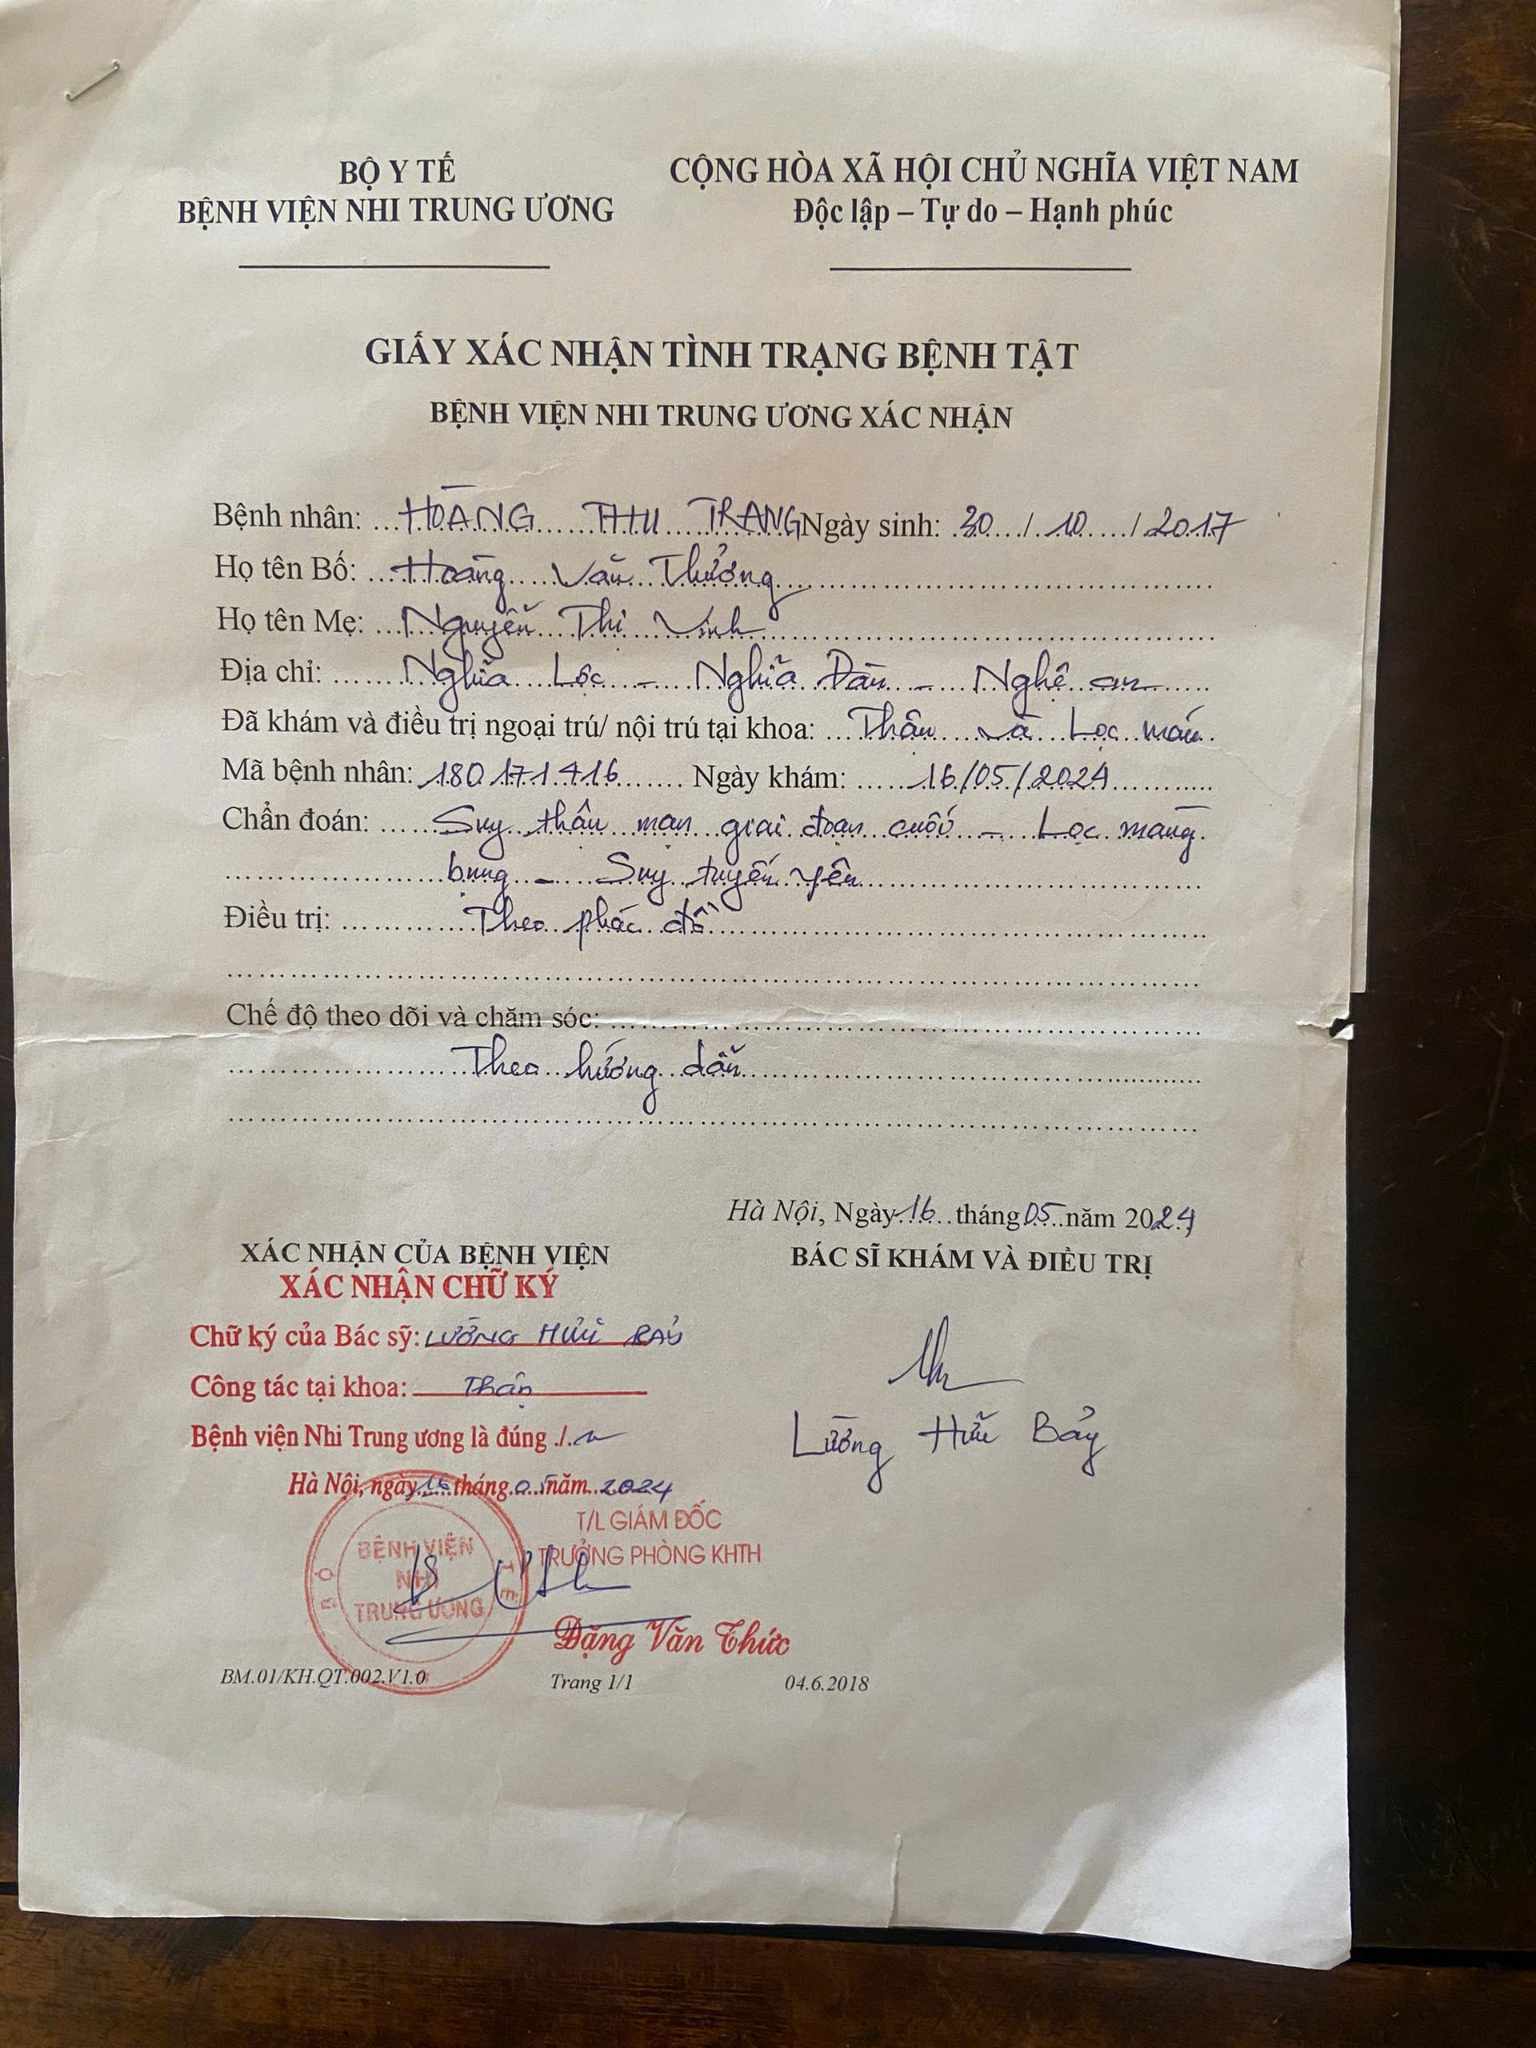 BỘ Y TẾ
BỆNH VIỆN NHI TRUNG ƯƠNG
CỘNG HÒA XÃ HỘI CHỦ NGHĨA VIỆT NAM
Độc lập – Tự do – Hạnh phúc
GIẤY XÁC NHẬN TÌNH TRẠNG BỆNH TẬT
BỆNH VIỆN NHI TRUNG ƯƠNG XÁC NHẬN
Bệnh nhân: HOÀNG THU TRANG Ngày sinh: 30/10/2017
Họ tên Bố: Hoàng Văn Thưởng
Họ tên Mẹ: Nguyễn Thị Vinh
Địa chỉ: Nghĩa Lộc – Nghĩa Đàn – Nghệ an
Đã khám và điều trị ngoại trú/ nội trú tại khoa: Thận và Lọc máu
Mã bệnh nhân: 180171416 Ngày khám: 16/05/2024
Chẩn đoán: Suy thận mạn giai đoạn cuối – Lọc màng
bụng – Suy tuyến yên
Điều trị: Theo phác đồ
Chế độ theo dõi và chăm sóc:
Theo hướng dẫn
Hà Nội, Ngày 16 tháng 05 năm 2024
XÁC NHẬN CỦA BỆNH VIỆN
BÁC SĨ KHÁM VÀ ĐIỀU TRỊ
XÁC NHẬN CHỮ KÝ
Chữ ký của Bác sỹ: LƯƠNG HỮU BẢY
Công tác tại khoa: Thận
Bệnh viện Nhi Trung ương là đúng ./.
Lương Hữu Bảy
Hà Nội, ngày 16 tháng 05 năm 2024
T/L GIÁM ĐỐC
TRƯỞNG PHÒNG KHTH
BỘ Y TẾ
BỆNH VIỆN
NHI
TRUNG ƯƠNG
Đặng Văn Thức
BM.01/KH.QT.002.V1.0 Trang 1/1 04.6.2018